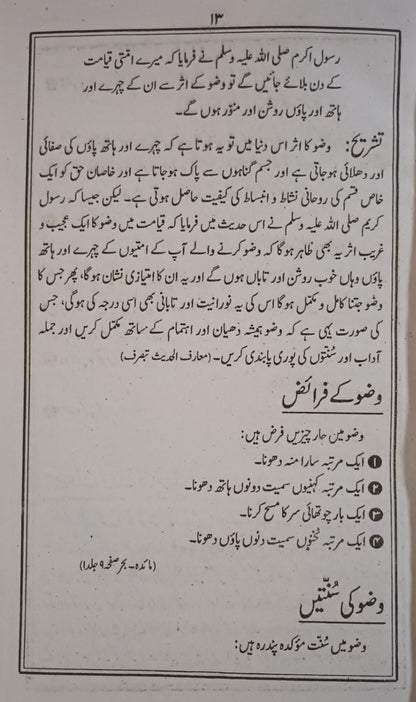 ۱۳
رسول اکرم صلی اللہ علیہ وسلم نے فرمایا کہ میرے امتی قیامت
کے دن بلائے جائیں گے تو وضو کے اثر سے ان کے چہرے اور
ہاتھ اور پاؤں روشن اور منوّر ہوں گے۔
تشریح: وضو کا اثر اس دنیا میں تو یہ ہوتا ہے کہ چہرے اور ہاتھ پاؤں کی صفائی
اور دھلائی ہوجاتی ہے اور جسم گناہوں سے پاک ہوجاتا ہے اور خاصان حق کو ایک
خاص قسم کی روحانی نشاط و انبساط کی کیفیت حاصل ہوتی ہے۔ لیکن جیسا کہ رسول
کریم صلی اللہ علیہ وسلم نے اس حدیث میں فرمایا کہ قیامت میں وضو کا ایک عجیب و
غریب اثر یہ بھی ظاہر ہوگا کہ وضو کرنے والے آپ کے امتیوں کے چہرے اور ہاتھ
پاؤں وہاں خوب روشن اور تاباں ہوں گے اور یہ ان کا امتیازی نشان ہوگا، پھر جس کا
وضو جتنا کامل و مکمل ہوگا اس کی یہ نورانیت اور تابانی بھی اسی درجہ کی ہوگی، جس
کی صورت یہی ہے کہ وضو ہمیشہ دھیان اور اہتمام کے ساتھ مکمل کریں اور جملہ
آداب اور سُنّتوں کی پوری پابندی کریں۔ (معارف الحدیث بتصرف)
وضو کے فرائض
وضو میں چار چیزیں فرض ہیں:
۱ ایک مرتبہ سارا منہ دھونا۔
۲ ایک مرتبہ کہنیوں سمیت دونوں ہاتھ دھونا۔
۳ ایک بار چوتھائی سر کا مسح کرنا۔
۴ ایک مرتبہ ٹخنوں سمیت دنوں پاؤں دھونا۔
(مائدہ۔ بحر صفحہ ۹ جلد ۱)
وضو کی سُنّتیں
وضو میں سُنّت مؤکدہ پندرہ ہیں: